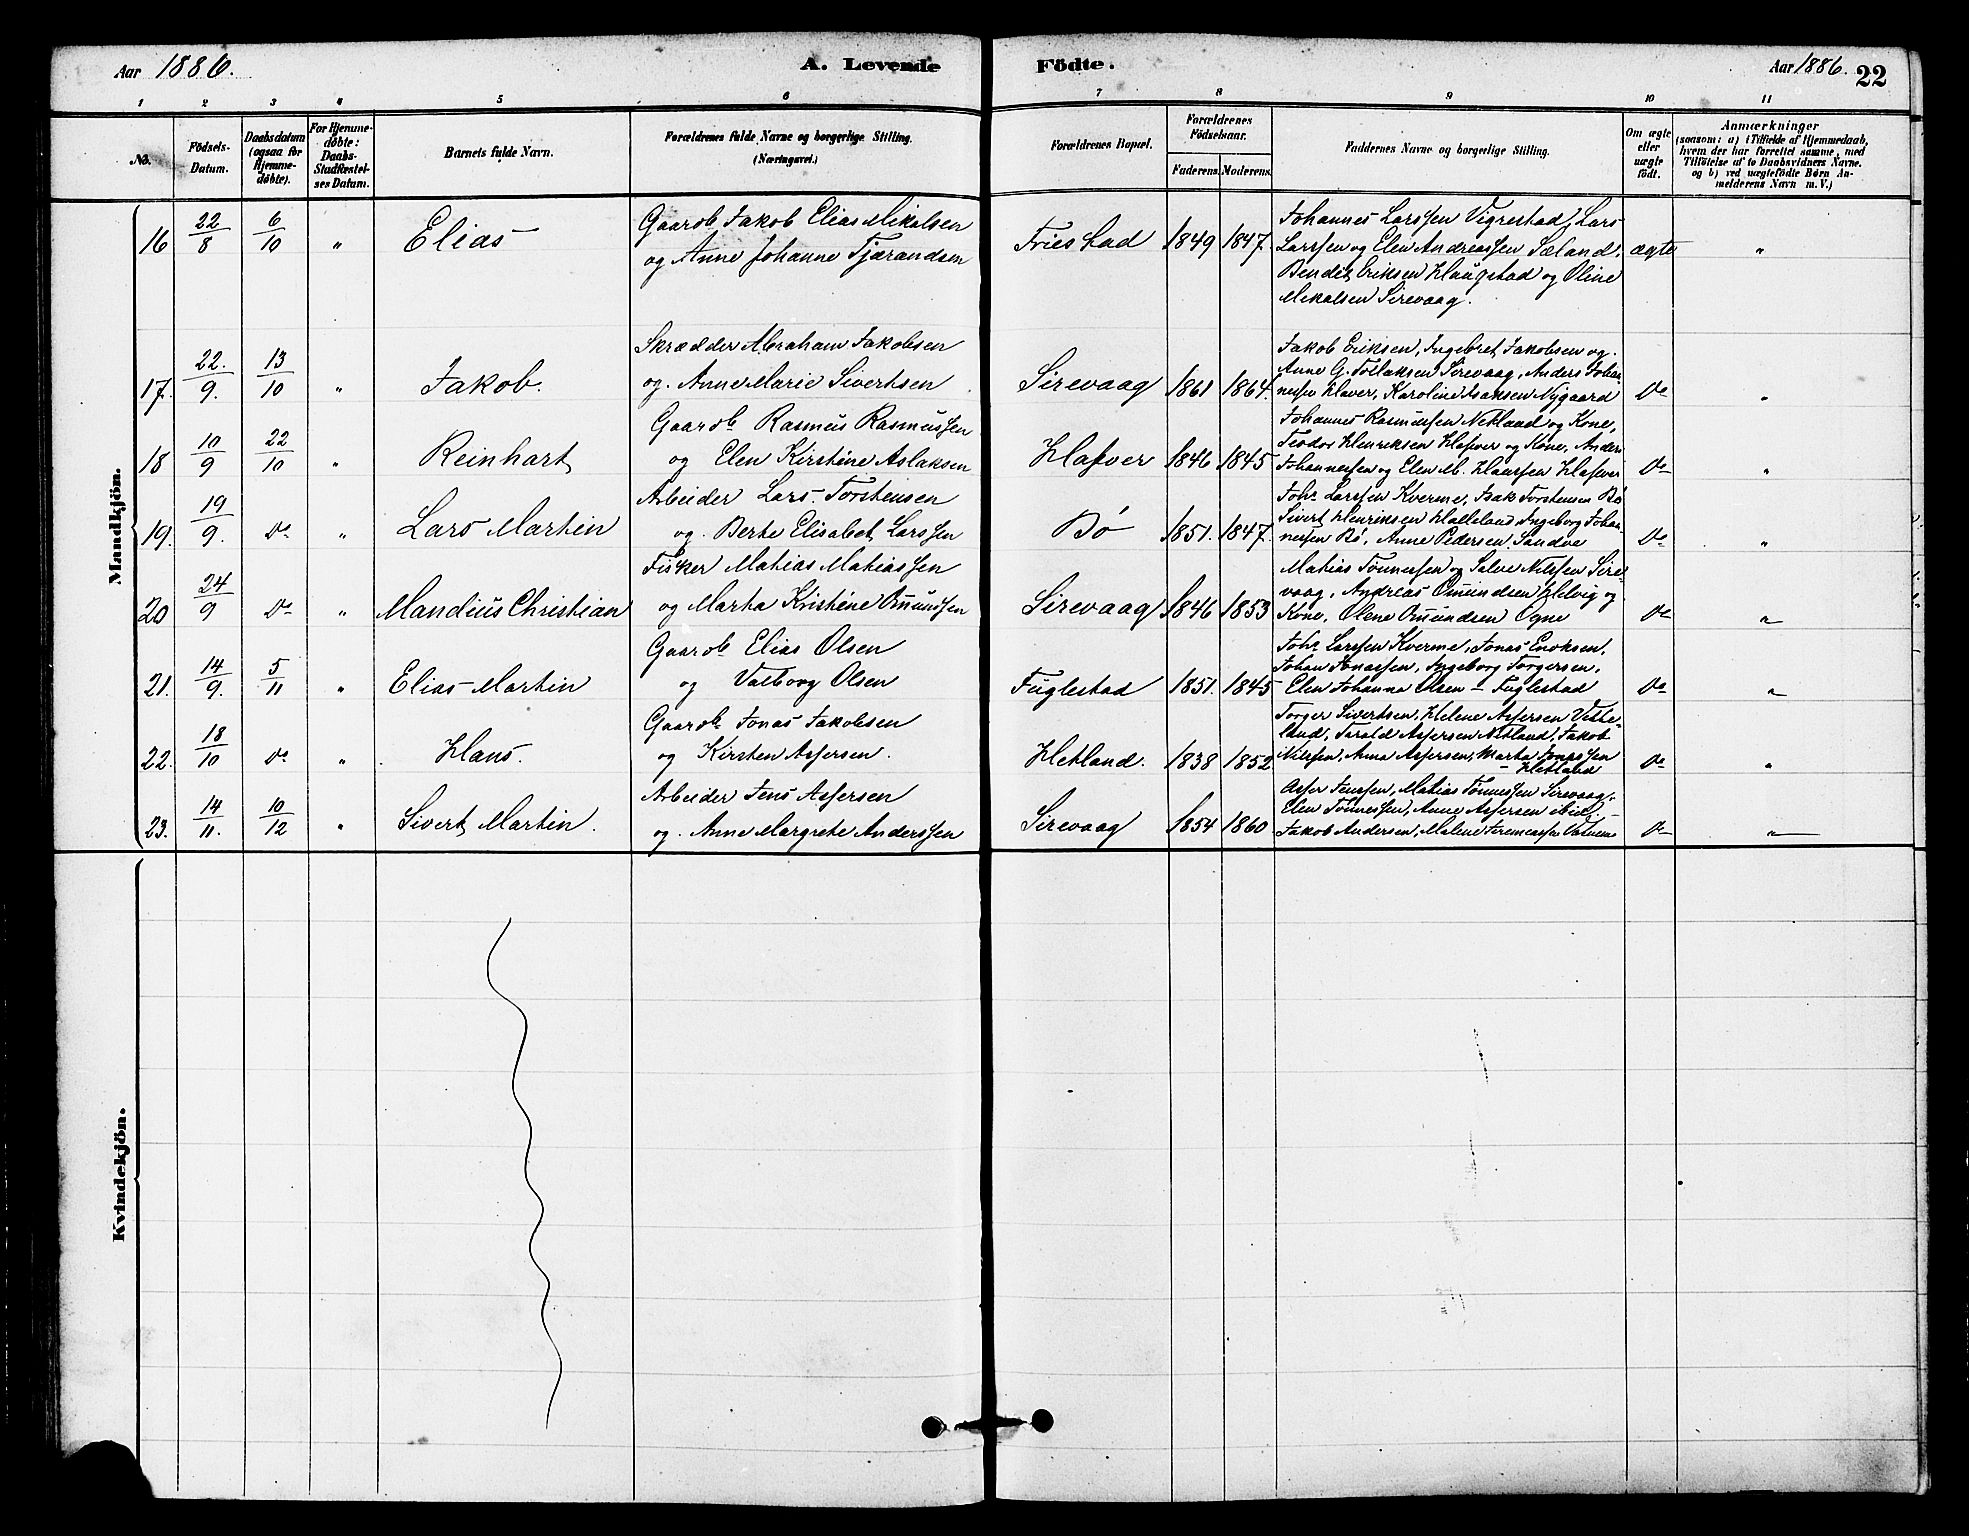 Aar 1886.
A. Levende
Födte.
Aar 1886.
22
1 2 3 4 5 6 7 8 9 10 11
No.
Födsels-Datum.
Daabsdatum (ogsaa for Hjemmedöbte).
For Hjemmedöbte: Daabs-Stadfæstelses Datum.
Barnets fulde Navn.
Forældrenes fulde Navne og borgerlige Stilling.
(Næringsvei.)
Forældrenes Bopæl.
Forældrenes Födselsaar.
Faderens. Moderens.
Faddernes Navne og borgerlige Stilling.
Om ægte eller uægte födt.
Anmærkninger
(saasom: a) i Tilfælde af Hjemmedaab, hvem der har forrettet samme, med Tilföielse af to Daabsvidners Navne. og b) ved uægtefödte Börn Anmelderens Navn m. V.)
Mandkjön.
16 22/8 6/10 " Elias
Gaardb. Jakob Elias Mikalsen
og Anne Johanne Tjærandsen
Friestad 1849 1847.
Johannes Larssen Vigrestad, Lars
Larssen og Elen Andreassen Sæland,
Bendit Eriksen Haugstad og Oline
Mikalsen Sirevaag.
ægte "
17. 22./9. 13/10 " Jakob.
Skrædder Abraham Jakobsen
og. Anne Marie Sivertsen
Sirevaag 1861 1864.
Jakob Eriksen, Ingebret Jakobsen og.
Anne G. Toslaksen Sirevaag, Anders Johan-
nessen Haver, Karoline Isaksen Nygaard
Do "
18 10/9 22/10 " Reinhart
Gaardb. Rasmus Rasmussen
og Elen Kirstine Aslaksen
Hafver 1846 1845
Johannes Rasmussen Netland og Kone,
Teodor Henriksen Hafver og Kone, Anders
Johannessen og Elen M. Hanssen Hafver
Do "
19. 19/9. Do " Lars Martin
Arbeider Lars Torstensen
og. Berte Elisabet Larssen
Bö 1851. 1847.
Johs Larssen Kverme, Isak Torstensen Bö
Sivert Henriksen Halleland, Ingeborg Johan-
nessen Bö, Anne Pedersen Sandve
Do "
20 24/9 Do " Mandius Christian
Fisker Mathias Mathiassen
og Marta Kristine Omundsen
Sirevaag 1846 1853
Mathias Tönnessen og Selve Nilssen Sire-
vaag, Andreas Omundsen Helvig og
Kone, Olene Omundsen Ogne
Do "
21. 14/9. 5/11 " Elias Martin
Gaardb. Elias Olsen
og Valborg Olsen
Fuglestad 1851. 1845
Johs Larssen Kverme, Jonas Enoksen,
Johan Jonassen, Ingeborg Torgersen,
Elen Johanna Olsen – Fuglestad
Do "
22. 18/10 Do " Hans.
Gaardb. Jonas Jakobsen
og Kirsten Assersen.
Hetland. 1838 1852
Torger Sivertsen, Helene Assersen Vetbe-
land, Tarald Assersen Netland, Jakob
Nilssen, Anna Assersen, Marta Jonassen
– Hetland
Do "
23. 14/11. 10/12 " Sivert Martin.
Arbeider Jens Assersen
og. Anne Margrete Anderssen
Sirevaag 1854 1860
Asser Jenssen, Mathias Tönnessen Sirevaag,
Elen Tönnessen, Anne Assersen ibid,
Jakob Andersen, Malene
Do "
Kvindekjön.